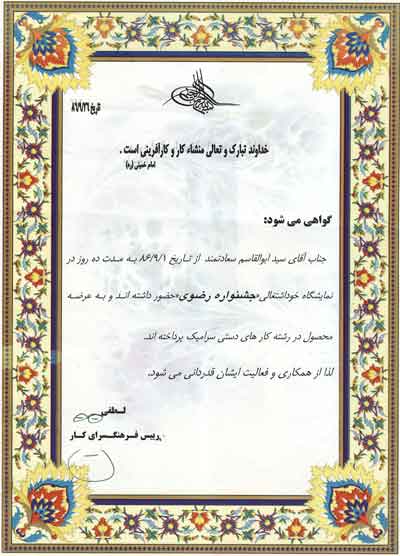 تاریخ ۸۶/۹/۲۶
خداوند تبارک و تعالی منشاء کار و کارآفرینی است .
امام خمینی (ره)
گواهی می شود:
جناب آقای سید ابوالقاسم سعادتمند از تاریخ ۸۶/۹/۱ به مدت ده روز در
نمایشگاه خوداشتغالی «جشنواره رضوی» حضور داشته اند و به عرضه
محصول در رشته کار های دستی سرامیک پرداخته اند.
لذا از همکاری و فعالیت ایشان قدردانی می شود.
لطفی
رییس فرهنگسرای کار